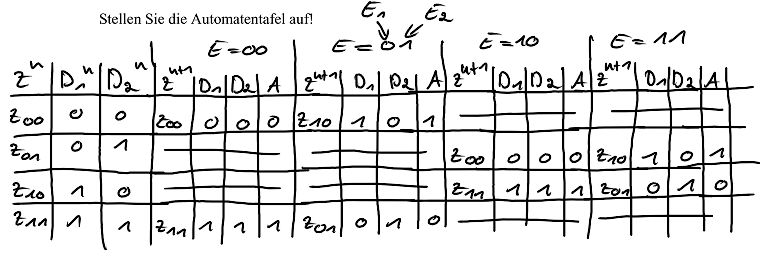 Stellen Sie die Automatentafel auf!
E1 E2
E=00 E=01 E=10 E=11
Z^n D1^n D2^n Z^n+1 D1 D2 A Z^n+1 D1 D2 A Z^n+1 D1 D2 A Z^n+1 D1 D2 A
Z00 0 0 Z00 0 0 0 Z10 1 0 1
Z01 0 1 Z00 0 0 0 Z10 1 0 1
Z10 1 0 Z11 1 1 1 Z01 0 1 0
Z11 1 1 Z11 1 1 1 Z01 0 1 0